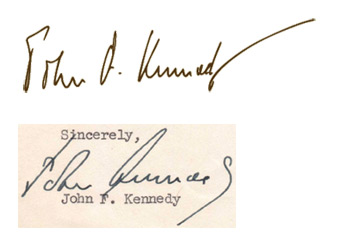 John F. Kennedy
Sincerely,
John Kennedy
John F. Kennedy